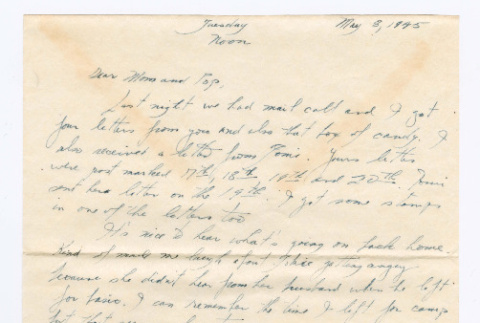 Tuesday May 8, 1945
Noon
Dear Mom and Pop,
Last night we had mail call and I got
four letters from you and also that box of candy. I
also received a letter from Tomi. Yours letter
were post marked 17th, 18th, 19th and 20th. Tomi
sent her letter on the 19th. I got some stamps
in one of the letters too
It's nice to hear what's going on back home.
Kind of made me laugh about getting angry
because she didn't hear from her husband when he left
for basic. I can remember the time I left for camp
but that